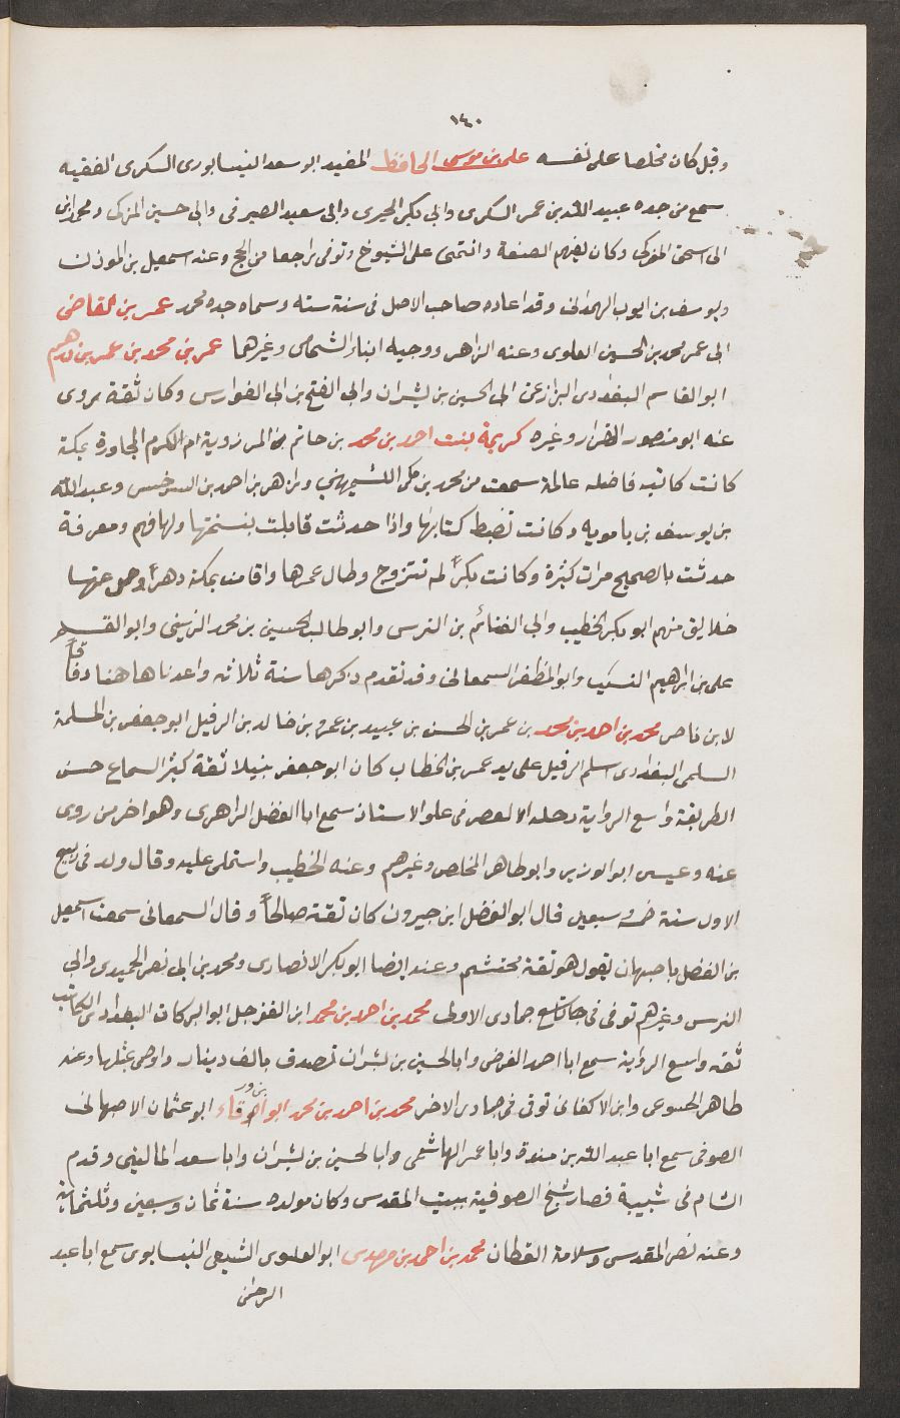 ١٤٠
وقيل كان مخلصا على نفسه على بن موسى الحافظ المفيد ابو سعد النيسابورى السكرى الفقيه
سمع من جده عبيد الله بن عمر السكرى وابى بكر الحيرى وابى سعيد الصيرفى وابى حسين المزكى ومحمد ابن
ابى اسحق المزكى وكان يفهم الصنعة وانتقى على الشيوخ وتوفى راجعا من الحج وعنه اسمعيل بن الموذن
ويوسف بن ايوب الهمدانى وقد اعاده صاحب الاصل فى سنة سته وسماه جده محمد عمر بن القاضى
ابى عمر محمد بن الحسين العلوى وعنه الزاهر ووجيه ابنا الشحامى وغيرهما عمر بن محمد بن عمر بن درهم
ابو القاسم البغدادى البزاز عن ابى الحسين بن بشران وابى الفتح بن ابى الفوارس وكان ثقة يروى
عنه ابو منصور القزاز وغيره كريمة بنت احمد بن محمد بن حاتم المرزوية ام الكرم المجاورة بمكة
كانت كاتبه فاضله عالمة سمعت من محمد بن مكى الكشيهينى وزاهر بن احمد السرخسى وعبد الله
بن يوسف بن بامويه وكانت تضبط كتابها واذا حدثت قابلت بنسختها ولها فهم ومعرفة
حدثت بالصحيح مرات كثيرة وكانت بكرًا لم تتزوج وطال عمرها واقامت بمكة دهرًا وحمل عنها
خلايق منهم ابو بكر الخطيب وابى الغنائم بن النرسى وابو طالب الحسين بن محمد الزينبى وابو القسم
على بن ابراهيم النسيب وابو المظفر السمعانى وقد تقدم ذكرها سنة ثلاثه واعدناها هنا وفاقًا
لابن ناصر محمد بن احمد بن محمد بن عمر بن الحسن بن عبيد بن عمرو بن خالد بن الرفيل ابو جعفر بن المسلمة
السلمى البغدادى اسلم الرفيل على يد عمر بن الخطاب كان ابو جعفر نبيلا ثقة كثير السماع حسن
الطريقة واسع الرواية رحلة العصر فى علو الاسناد سمع ابا الفضل الزاهرى وهو اخر من روى
عنه وعيسى ابو الوزير وابو طاهر المخلص وغيرهم وعنه الخطيب واستملى عليه وقال ولد فى ربيع
الاول سنة خمس وسبعين قال ابو الفضل ابن خيرون كان ثقة صالحاً وقال السمعانى سمعت اسمعيل
بن الفضل باصبهان يقول هو ثقة محتشم وعنه ايضا ابو بكر الانصارى ومحمد بن ابى نصر الحميدى وابى
النرسى وغيرهم توفى فى تاسع جمادى الاولى محمد بن احمد بن محمد ابن القزجل ابو البركات البغدادى الكاتب
ثقه واسع الرؤية سمع ابا احمد الفرضى وابا الحسين بن بشران تصدق بالف دينار واوصى بمثلها وعنه
طاهر الخشوعى وابن الاكفانى توفى فى جمادى الاخر محمد بن احمد بن محمد ابو ورقاء ابو عثمان الاصبهانى
الصوفى سمع ابا عبد الله بن مندة وابا عمر الهاشمى وابا الحسين بن بشران وابا سعد المالينى وقدم
الشام فى شبيبة فصار شيخ الصوفية ببيت المقدس وكان مولده سنة ثمان وسبعين وثلثمائة
وعنه نصر المقدسى وسلامة القطان محمد بن احمد بن مهدى ابو العلوى الشيعى النيسابورى سمع ابا عبد
الرحمن